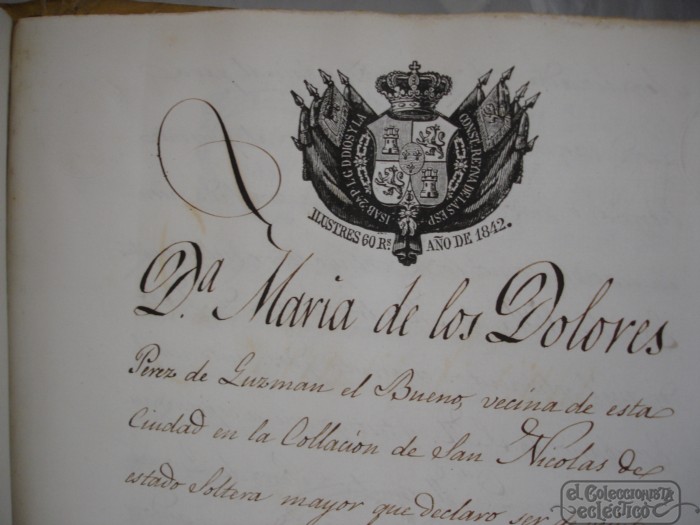 ISAB. 2ª P. L. G. D DIOS Y LA CONST. REINA DE LAS ESP.
ILUSTRES 60 Rs. AÑO DE 1842.
D.ª Maria de los Dolores
Perez de Guzman el Bueno, vecina de esta
Ciudad en la Collacion de San Nicolas de
estado Soltera mayor que declaro ser
el Coleccionista
ecléctico